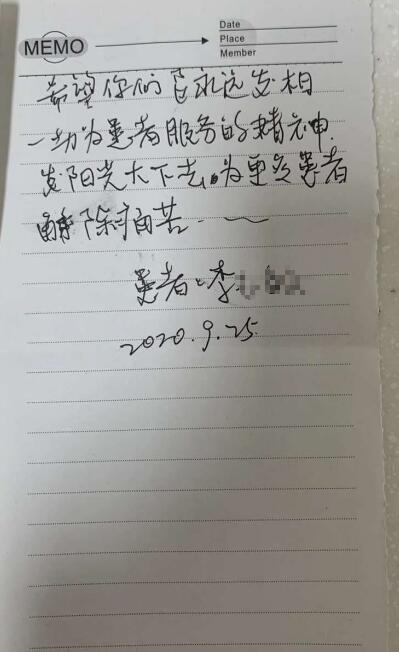 MEMO
Date
Place
Member
希望你们永远发扬
一切为患者服务的精神.
发阳光大下去,为更多患者
解除痛苦.
患者:李
2020.9.25